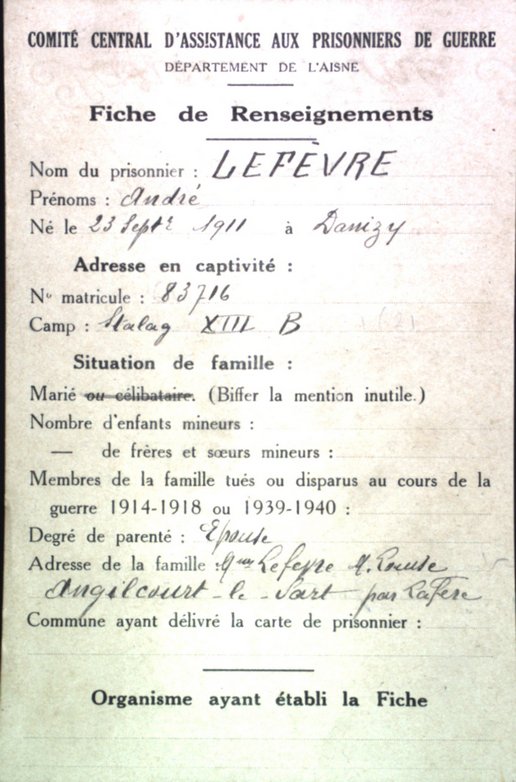 COMITÉ CENTRAL D'ASSISTANCE AUX PRISONNIERS DE GUERRE
DÉPARTEMENT DE L'AISNE
Fiche de Renseignements
Nom du prisonnier : LEFÈVRE
Prénoms : André
Né le 23 Septre 1911 à Danizy
Adresse en captivité :
No matricule : 83716
Camp : Stalag XIII B
Situation de famille :
Marié ou célibataire. (Biffer la mention inutile.)
Nombre d'enfants mineurs :
— de frères et sœurs mineurs :
Membres de la famille tués ou disparus au cours de la
guerre 1914-1918 ou 1939-1940 :
Degré de parenté : Epouse
Adresse de la famille : Mme Lefevre M. Louise
Angilcourt-le-Sart par LaFère
Commune ayant délivré la carte de prisonnier :
Organisme ayant établi la Fiche